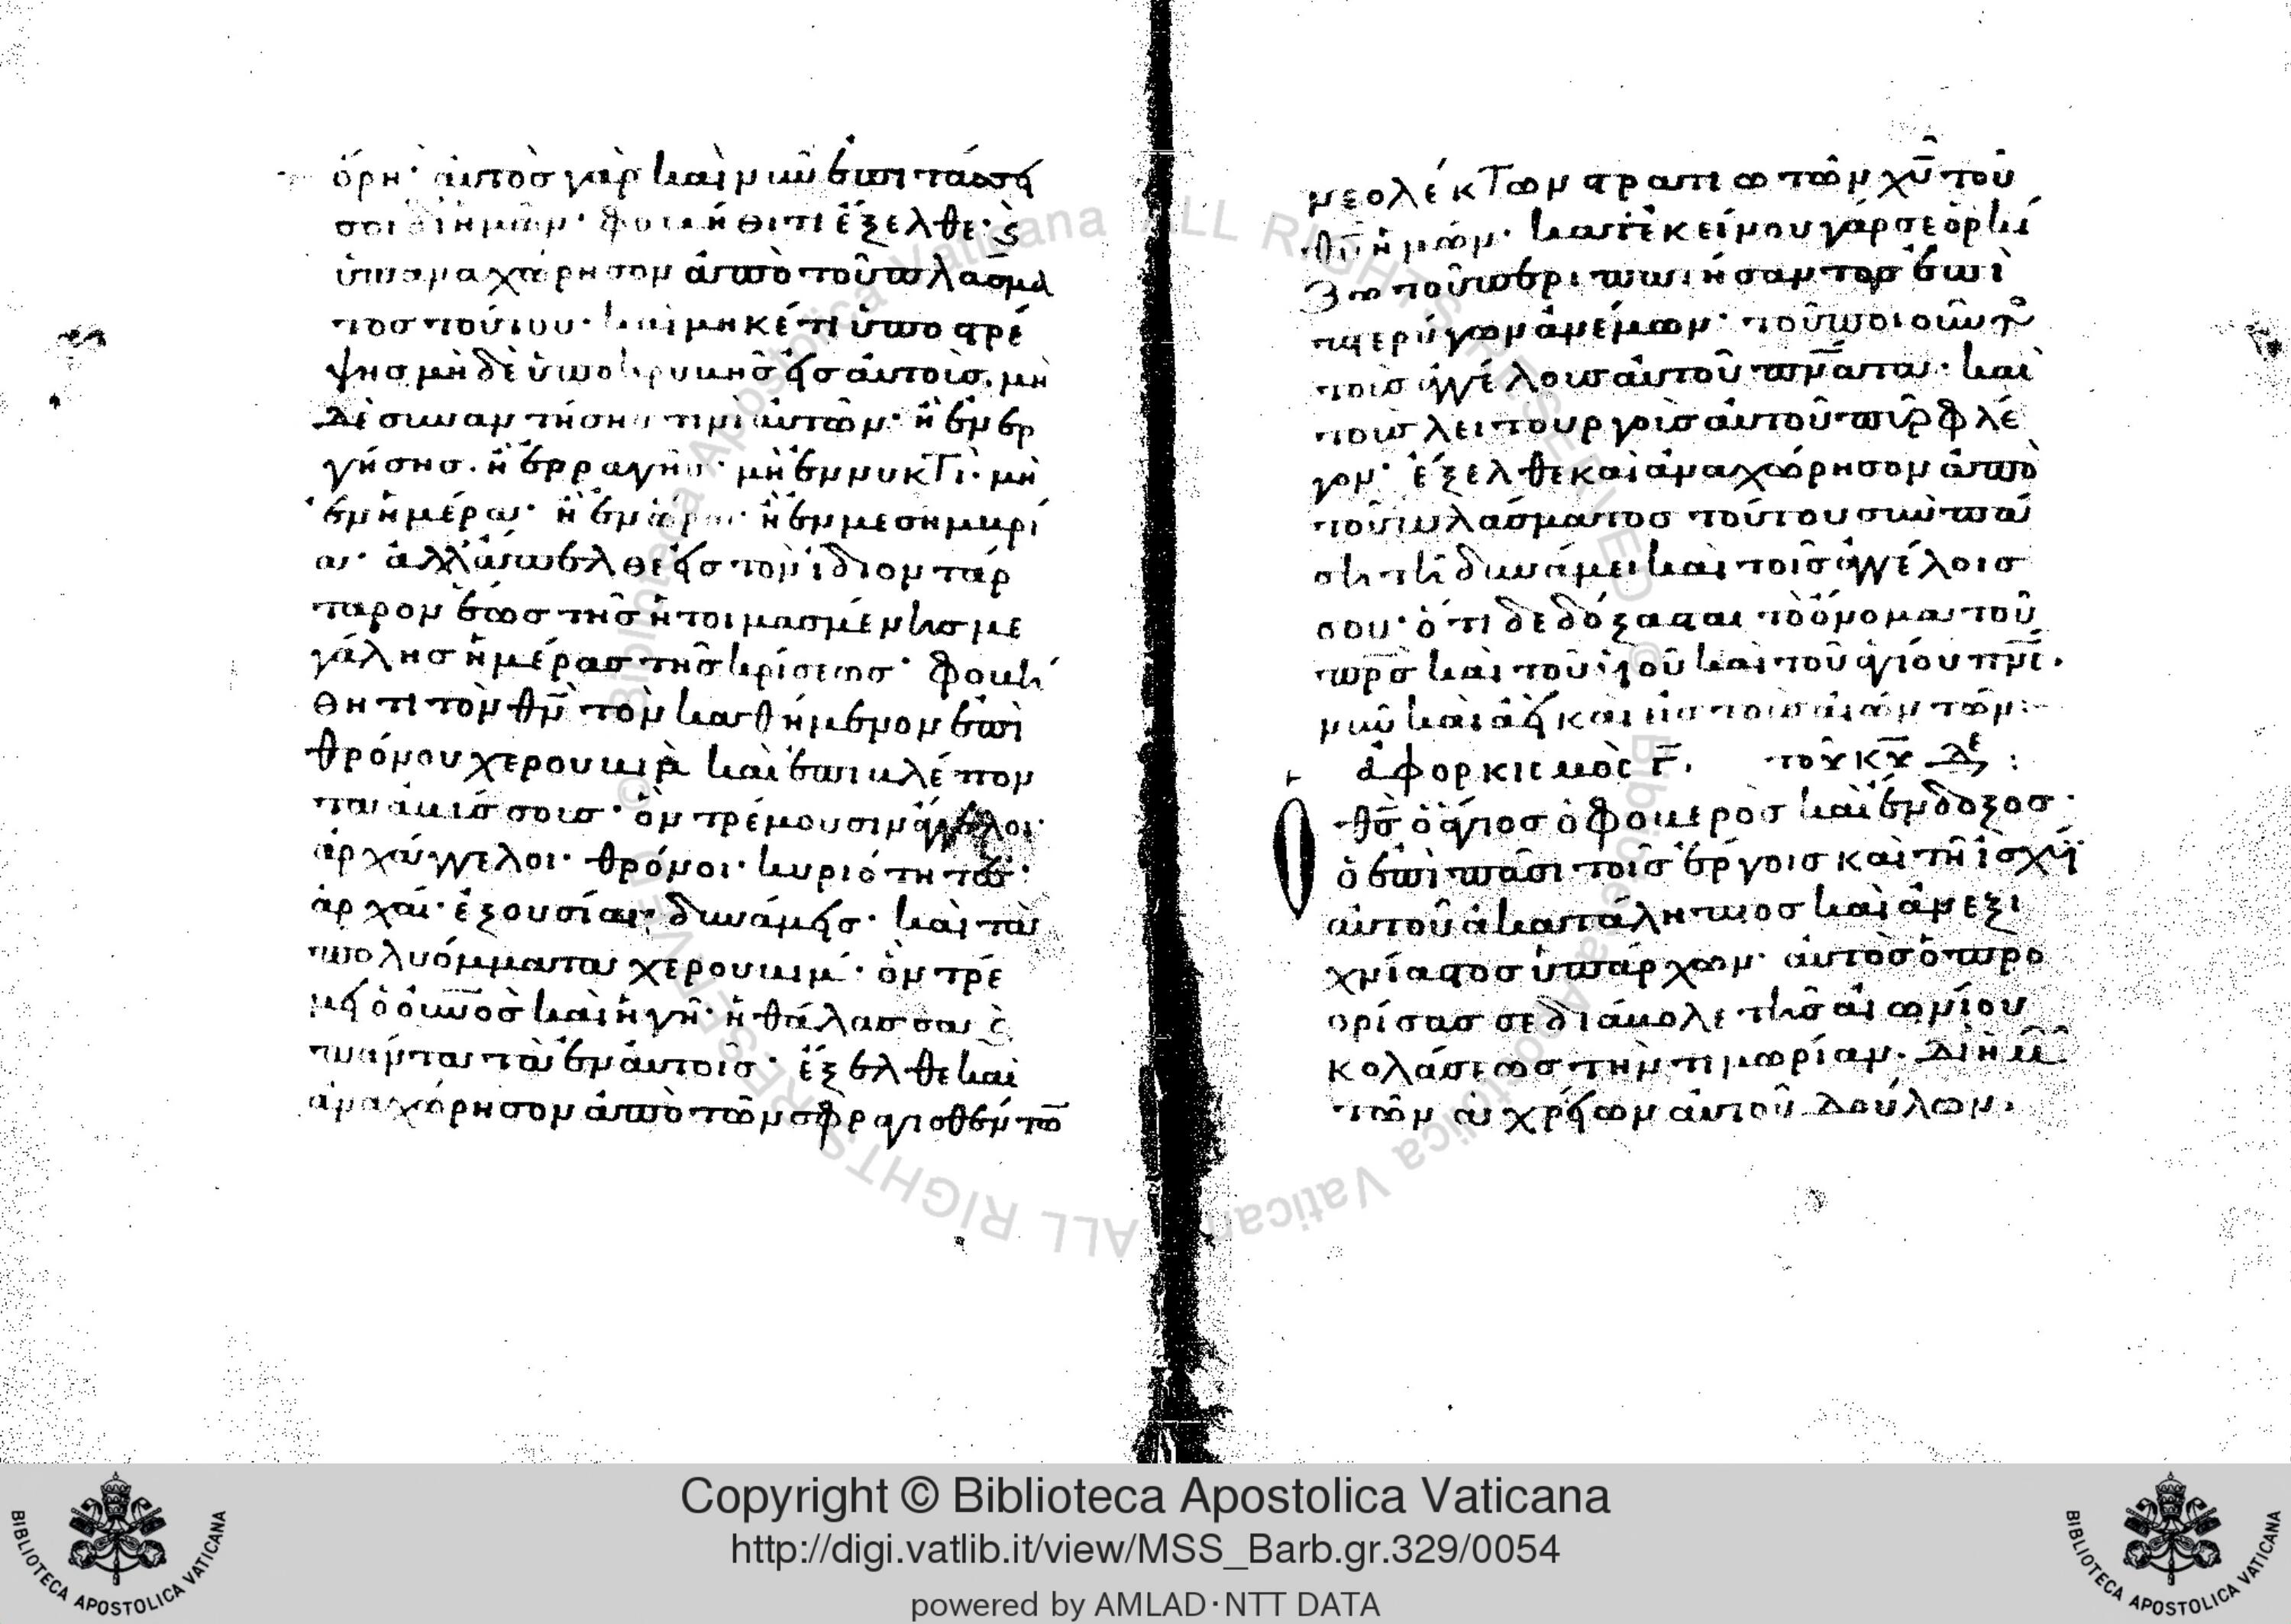 ὄρη· αὐτὸσ γὰρ καὶ νῦν ἐπιτάσσει
σοι δι ἡμῶν· φοβήθητι ἔξελθε· ϛ
ὑπαναχώρησον ἀπὸ τοῦ πλάσμα
τοσ τούτου· καὶ μηκέτι ὑποστρέ
ψησ μὴ δὲ ὑποκρυβῆσ εἰσ αὐτοῖσ. μὴ
δὲ συναντήσησ τινὶ αὐτῶν· ἢ ἐνερ
γήσησ. ἢ ἐρραγῆσ· μὴ ἐν νυκτὶ· μὴ
ἐν ἡμέρα· ἢ ἐν ὥρα· ἢ ἐν μεσημβρί
α· ἀλλἄπελθε εἰσ τὸν ἴδιον τάρ
ταρον ἕωσ τῆσ ἡτοιμασμένησ με
γάλησ ἡμέρασ τῆσ κρίσεωσ· φοβή
θητι τὸν θν̄ τὸν καθήμενον ἐπὶ
θρόνου χερουβὶμ καὶ ἐπιβλέπον
τα ἀβύσσουσ· ὃν τρέμουσιν ἄγγελοι·
ἀρχάγγελοι· θρόνοι· κυριότητεσ·
ἀρχαί· ἐξουσίαι· δυνάμεισ· καὶ τὰ
πολυόμματα χερουβίμ· ὃν τρέ
μει ὁ οὐνοσ̄ καὶ ἡ γῆ· ἡ θάλασσα ϛ
πάντα τὰ ἐν αὐτοῖσ· ἔξελθε καὶ
ἀναχώρησον ἀπὸ τῶν σφραγισθέντω
νεολέκτων στρατιωτῶν χῡ τοῦ
θῡ ἡμῶν· κατ ἐκείνου γάρ σε ὁρκί
ζω τοῦ περιπατήσαντοσ ἐπὶ
πτερύγων ἀνέμων· τοῦ ποιοῦντοσ
τοὺσ ἀγγέλουσ αὐτοῦ πν̄ατα· καὶ
τοὺσ λειτουργοὺσ αὐτοῦ πῦρ φλέ
γον· ἔξελθε καὶ ἀναχώρησον ἀπὸ
τοῦ πλάσματοσ τούτου σὺν πά
ση τῆ δυνάμει καὶ τοῖσ ἀγγέλοισ
σου· ὅτι δεδόξασται τὸ ὄνομα τοῦ
πρ̄σ καὶ τοῦ υἱοῦ καὶ τοῦ ἁγίου πν̄σ.
νῦν καὶ ἀεὶ καὶ εἰσ τοὺσ αἰώνασ τῶν:
ἀφορκισμὸσ Γ̄. τοῦ κῡ δε:
Ὁ θσ̄ ὁ ἅγιοσ ὁ φοβερὸσ καὶ ἔνδοξοσ·
ὁ ἐπὶ πᾶσι τοῖσ ἔργοισ καὶ τῆ ἰσχύϊ
αὐτοῦ ἀκατάληπτοσ καὶ ἀνεξι
χνίαστοσ ὑπάρχων· αὐτὸσ ὁ προ
ορίσασ σε διάβολε τῆσ αἰωνίου
κολάσεωσ τὴν τιμωρίαν. δι ἡμῶν
τῶν ἀχρείων αὐτοῦ δούλων.
Copyright © Biblioteca Apostolica Vaticana
http://digi.vatlib.it/view/MSS_Barb.gr.329/0054
powered by AMLAD·NTT DATA
BIBLIOTECA APOSTOLICA VATICANA
BIBLIOTECA APOSTOLICA VATICANA